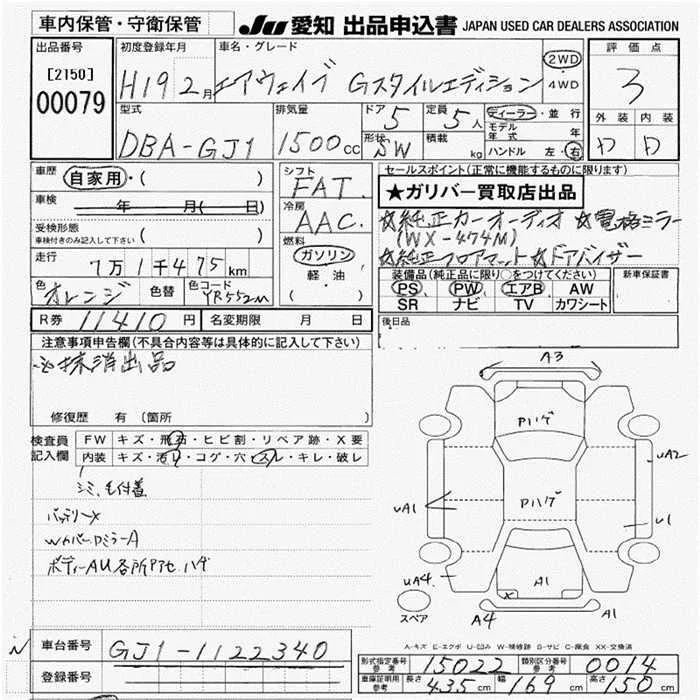 車内保管・守衛保管
JU 愛知 出品申込書 JAPAN USED CAR DEALERS ASSOCIATION
出品番号
[2150]
00079
初度登録年月
H19 2月
車名・グレード
エアウェイブ Gスタイルエディション
2WD
・
4WD
評価点
3
外装 内装
D D
型式
DBA-GJ1
排気量
1500cc
ドア
5
形状
SW
定員
5人
積載
kg
ディーラー・並行
モデル年式 年
ハンドル 左・右
車歴
自家用・( )
車検
年 月( 日)
受検形態
車検付きのみ記入して下さい ( )
走行
7万1千475km
色
オレンジ
色替
色コード
YR552M
シフト
FAT.
冷房
AAC.
燃料
ガソリン
軽油
( )
セールスポイント(正常に機能するものに限ります)
★ガリバー買取店出品
☆純正カーオーディオ ☆電格ミラー
(WX-474M)
☆純正フロアマット ☆ドアバイザー
装備品(純正品に限り○をつけてください)
PS PW エアB AW
SR ナビ TV カワシート
新車保証書
後日品
R券 11410円
名変期限 月 日
注意事項申告欄(不具合内容等は具体的に記入して下さい)
※抹消出品
修復歴 有 (箇所
検査員
記入欄
FW キズ・飛石・ヒビ割・リペア跡・X要
内装 キズ・汚レ・コゲ・穴・スレ・キレ・破レ
シミ、毛付着
バッテリーX
WカバーDミラーA
ボディーAU各所
ハゲ
A3
Pハゲ
UA2
UA1
Pハゲ
U1
UA4
A1
X
A4
A1
スペア
A-キズ E-エクボ U-凹み W-補修跡 S-サビ C-腐食 XX-交換済
車台番号
GJ1-1122340
登録番号
型式指定番号
参考
15022
類別区分番号
参考
0014
車庫証明用
参考
長さ 435cm 幅 169cm 高さ 150cm